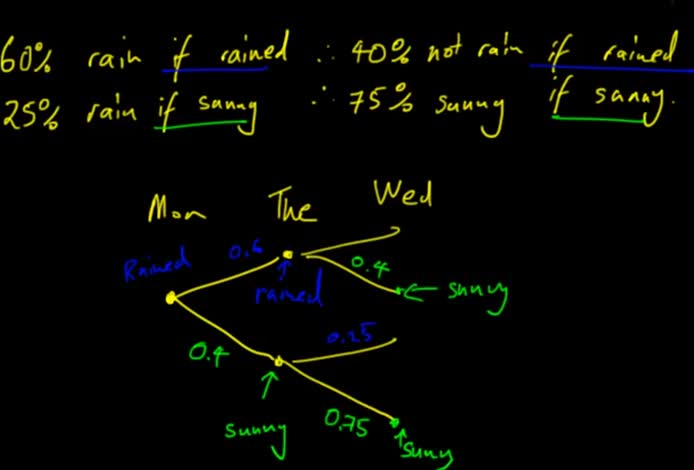 60% rain if rained ∴ 40% not rain if rained
25% rain if sunny ∴ 75% sunny if sunny.
Mon The Wed
Rained 0.6 0.4
rained sunny
0.25
0.4
sunny 0.75 suny